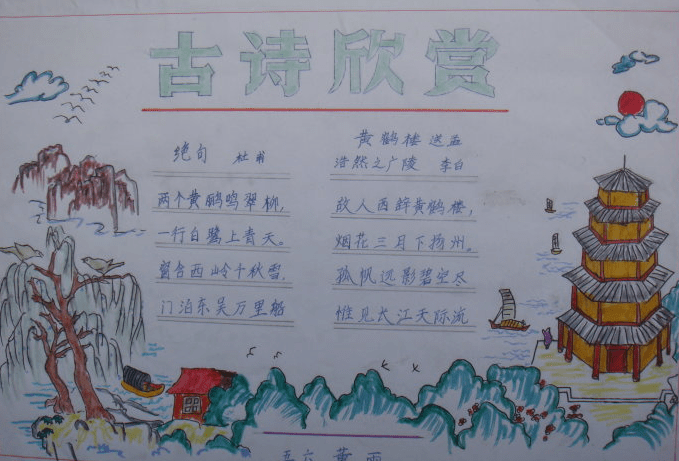 古诗欣赏
绝句 杜甫
两个黄鹂鸣翠柳，
一行白鹭上青天。
窗含西岭千秋雪，
门泊东吴万里船
黄鹤楼送孟
浩然之广陵 李白
故人西辞黄鹤楼，
烟花三月下扬州。
孤帆远影碧空尽
惟见长江天际流
五六 黄雨